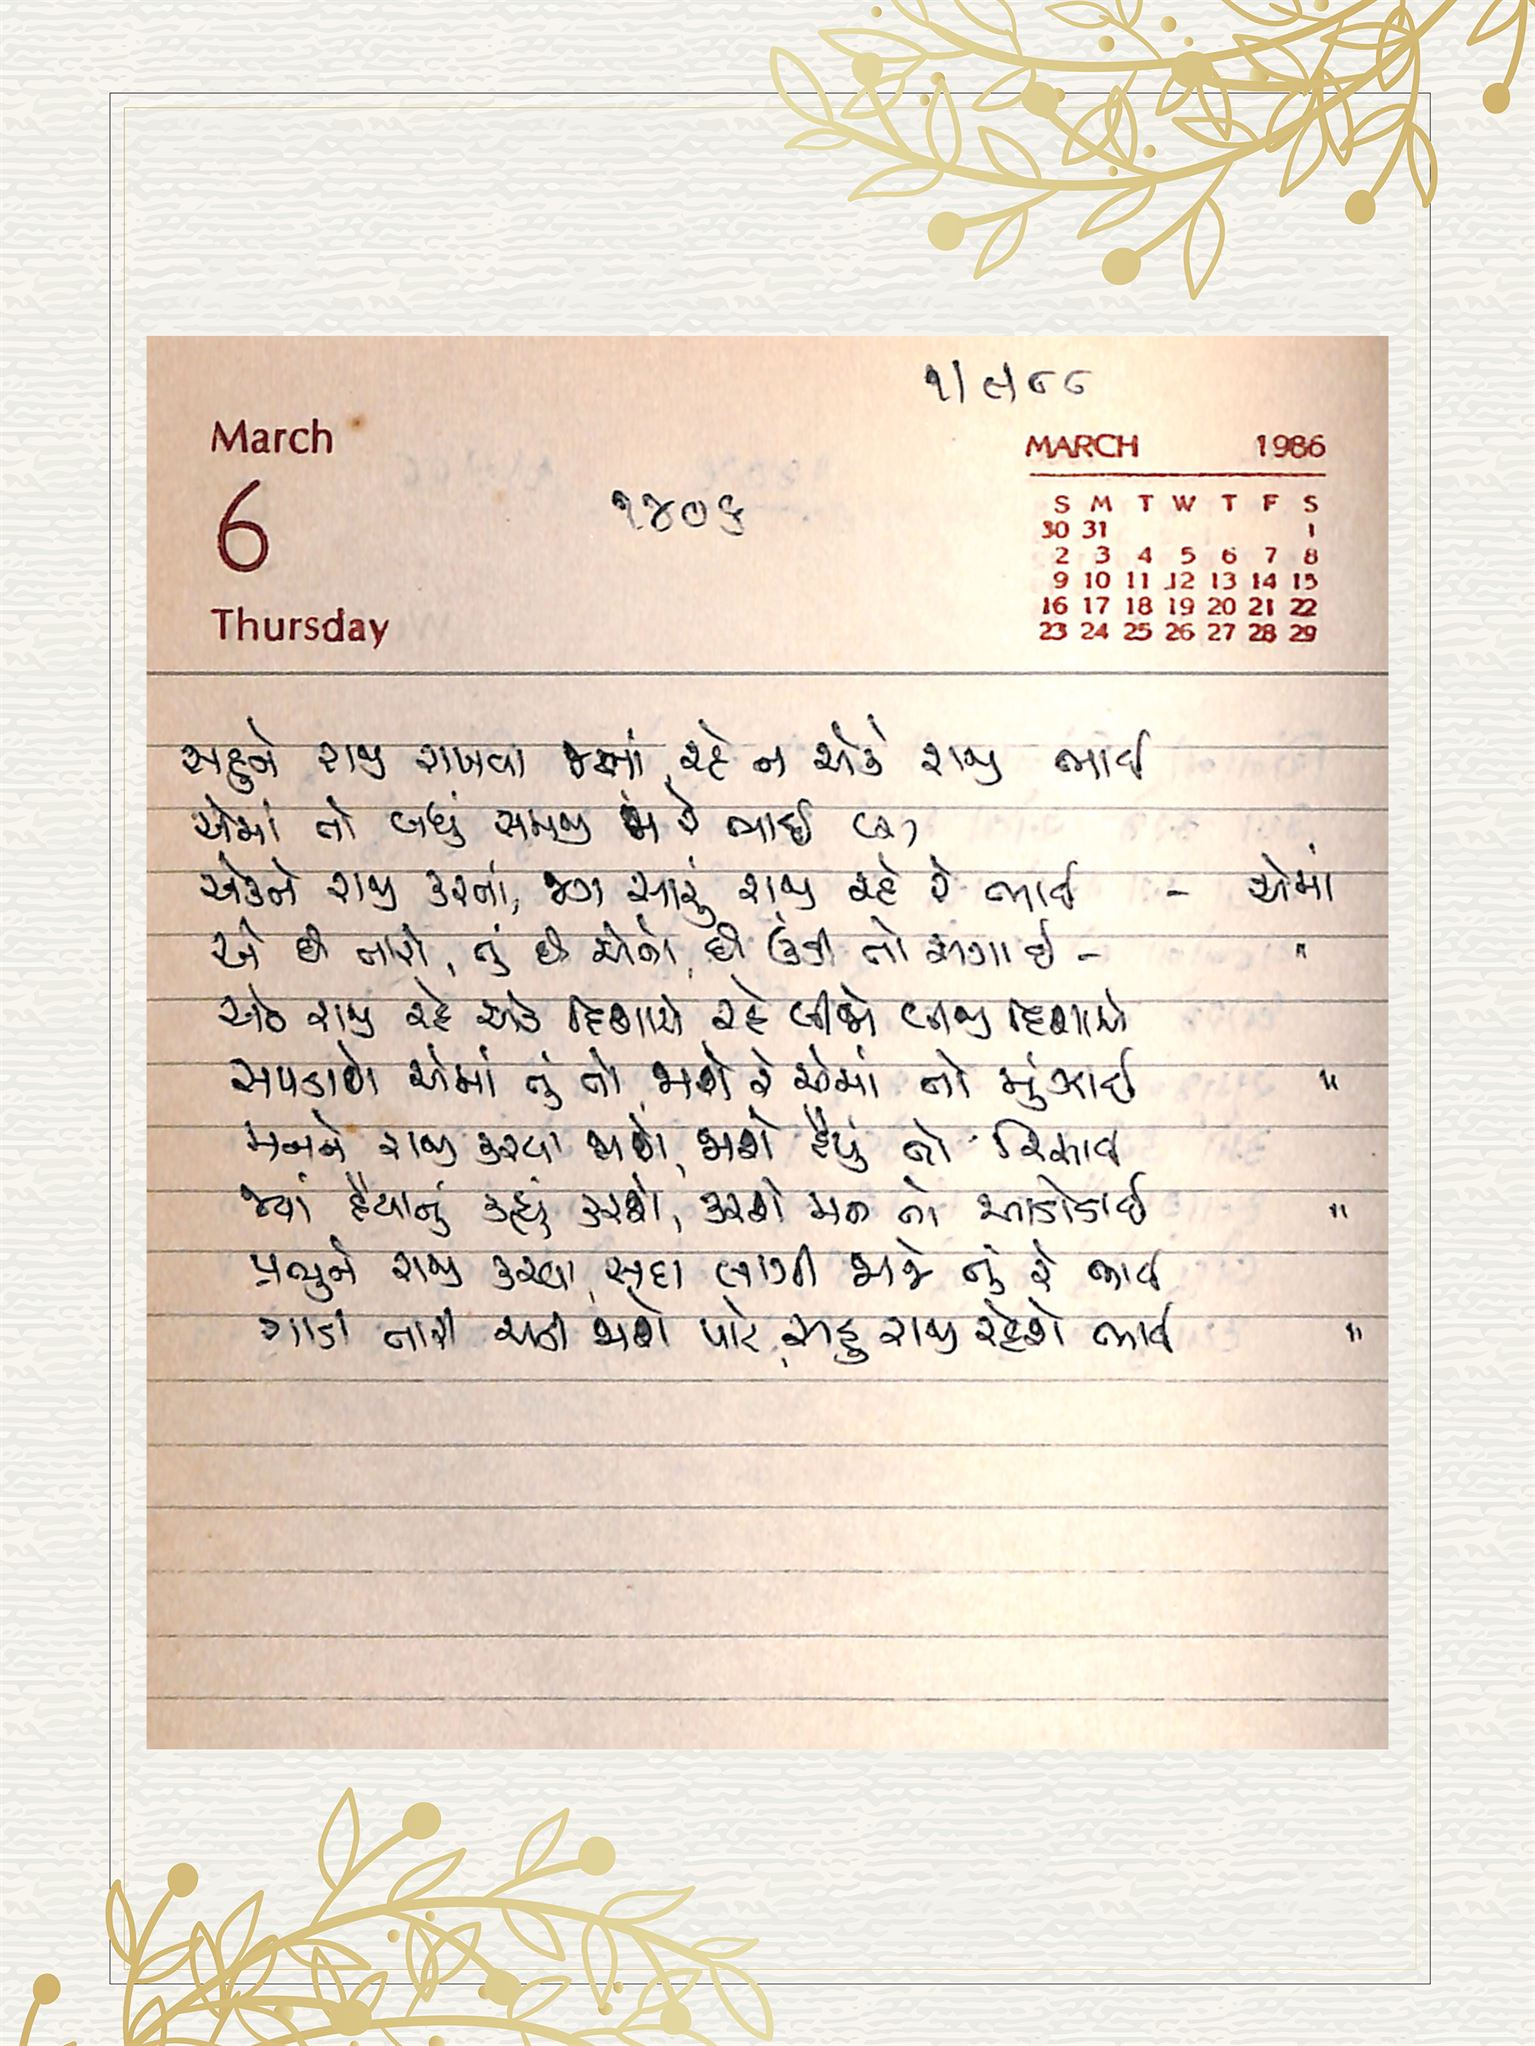 ૧/૮/૮૮
March
6
Thursday
૧૪૦૬
MARCH 1986
S M T W T F S
30 31 1
2 3 4 5 6 7 8
9 10 11 12 13 14 15
16 17 18 19 20 21 22
23 24 25 26 27 28 29
સહુને રાજી રાખવા જતાં, રહે ન એકે રાજી ભાઈ
એમાં તો બધું સમજી જા રે ભાઈ (૨)
એકને રાજી કરતાં, જગ સારું રાજી રહે રે ભાઈ - એમાં
એ છે તારો, તું છે એનો, છે ઉંડી તો સગાઈ - "
એક રાજી રહે એક દિશાએ રહે બીજો બીજી દિશાએ
સપડાશે એમાં તું તો, જાશે રે એમાં તો મુંઝાઈ "
મનને રાજી કરવા જાશે, જાશે હૈયું તો રિસાઈ
જ્યાં હૈયાનું કહ્યું કરશે, કરશે મન તો આડોડાઈ "
પ્રભુને રાજી કરવા, સદા લાગી જાજે તું રે ભાઈ
ગાડી તારી ચાલી જાશે પાટે, સહુ રાજી રહેશે ભાઈ "